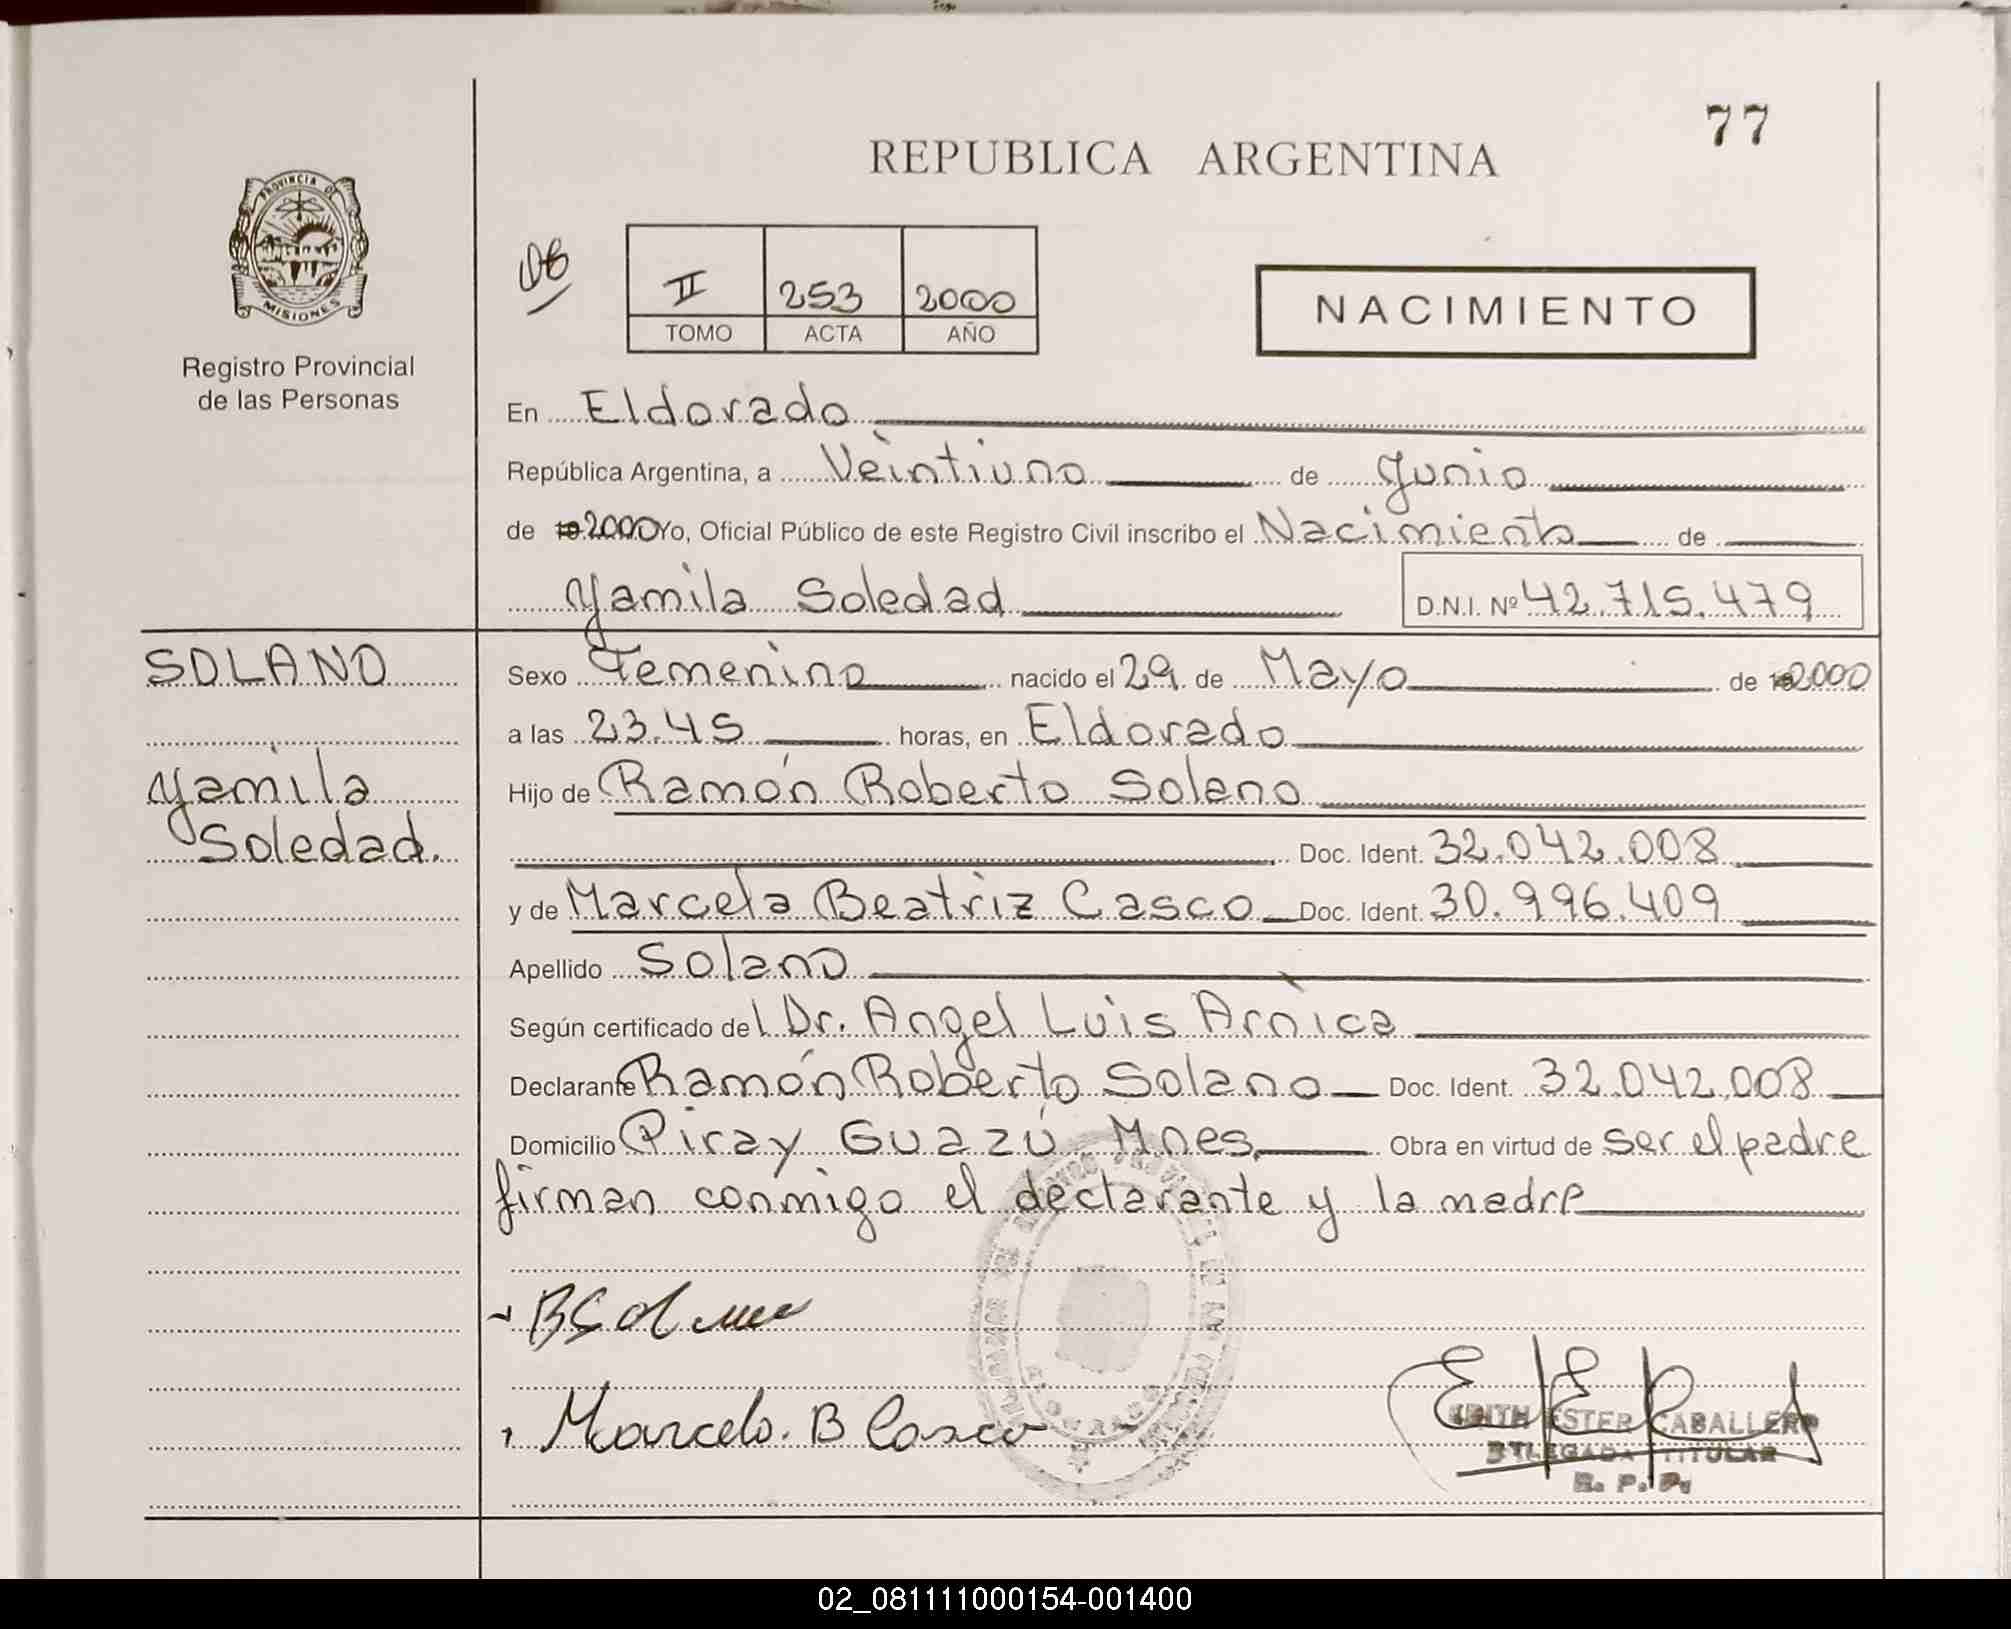 77
REPUBLICA ARGENTINA
PROVINCIA DE
MISIONES
Registro Provincial
de las Personas
II 253 2000
TOMO ACTA AÑO
NACIMIENTO
En Eldorado
República Argentina, a Veintiuno de Junio
de 19 2000 Yo, Oficial Público de este Registro Civil inscribo el Nacimiento de
Yamila Soledad D.N.I. Nº 42.715.479
SOLANO
Yamila
Soledad.
Sexo Femenino nacido el 29 de Mayo de 19 2000
a las 23.45 horas, en Eldorado
Hijo de Ramón Roberto Solano
Doc. Ident. 32.042.008
y de Marcela Beatriz Casco Doc. Ident. 30.996.409
Apellido Solano
Según certificado del Dr. Angel Luis Arnica
Declarante Ramón Roberto Solano Doc. Ident. 32.042.008
Domicilio Piray Guazú Mnes. Obra en virtud de ser el padre
firman conmigo el declarante y la madre
Marcela. B Casco
EDITH ESTER CABALLERO
DELEGADA TITULAR
R. P. P.
02_081111000154-001400